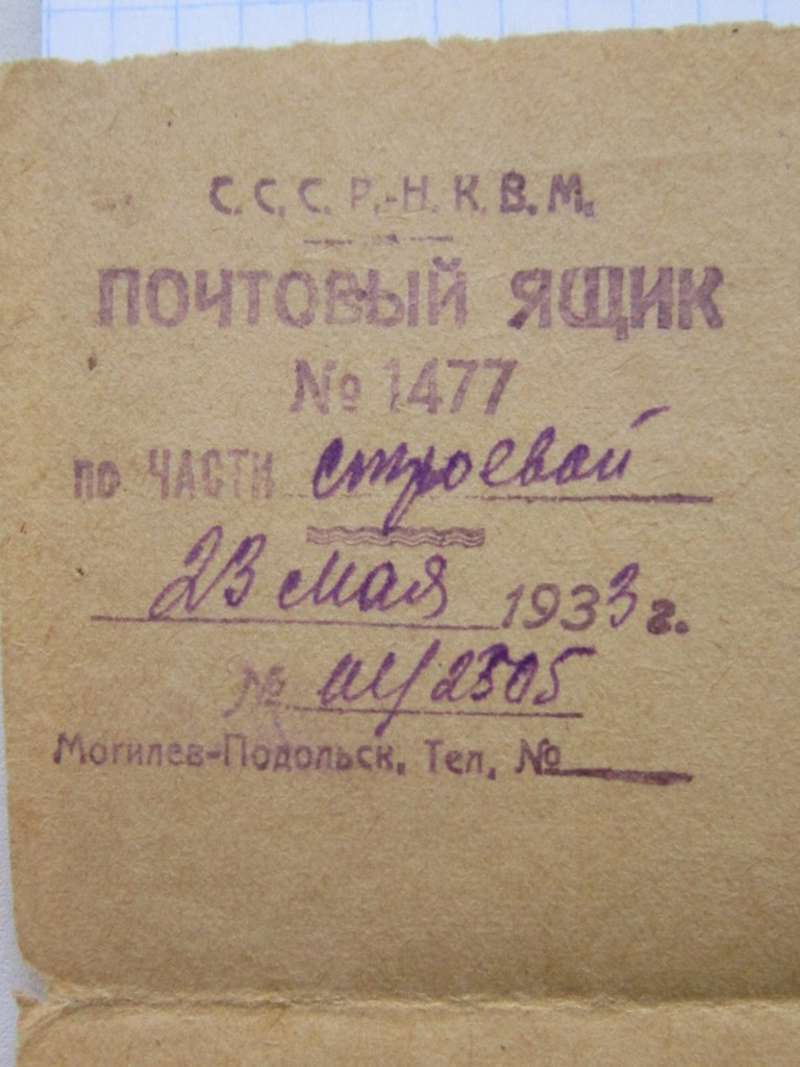 С. С. С. Р.-Н. К. В. М.
ПОЧТОВЫЙ ЯЩИК
№ 1477
по ЧАСТИ строевой
23 мая 1933 г.
№ 2505
Могилев-Подольск. Тел. №